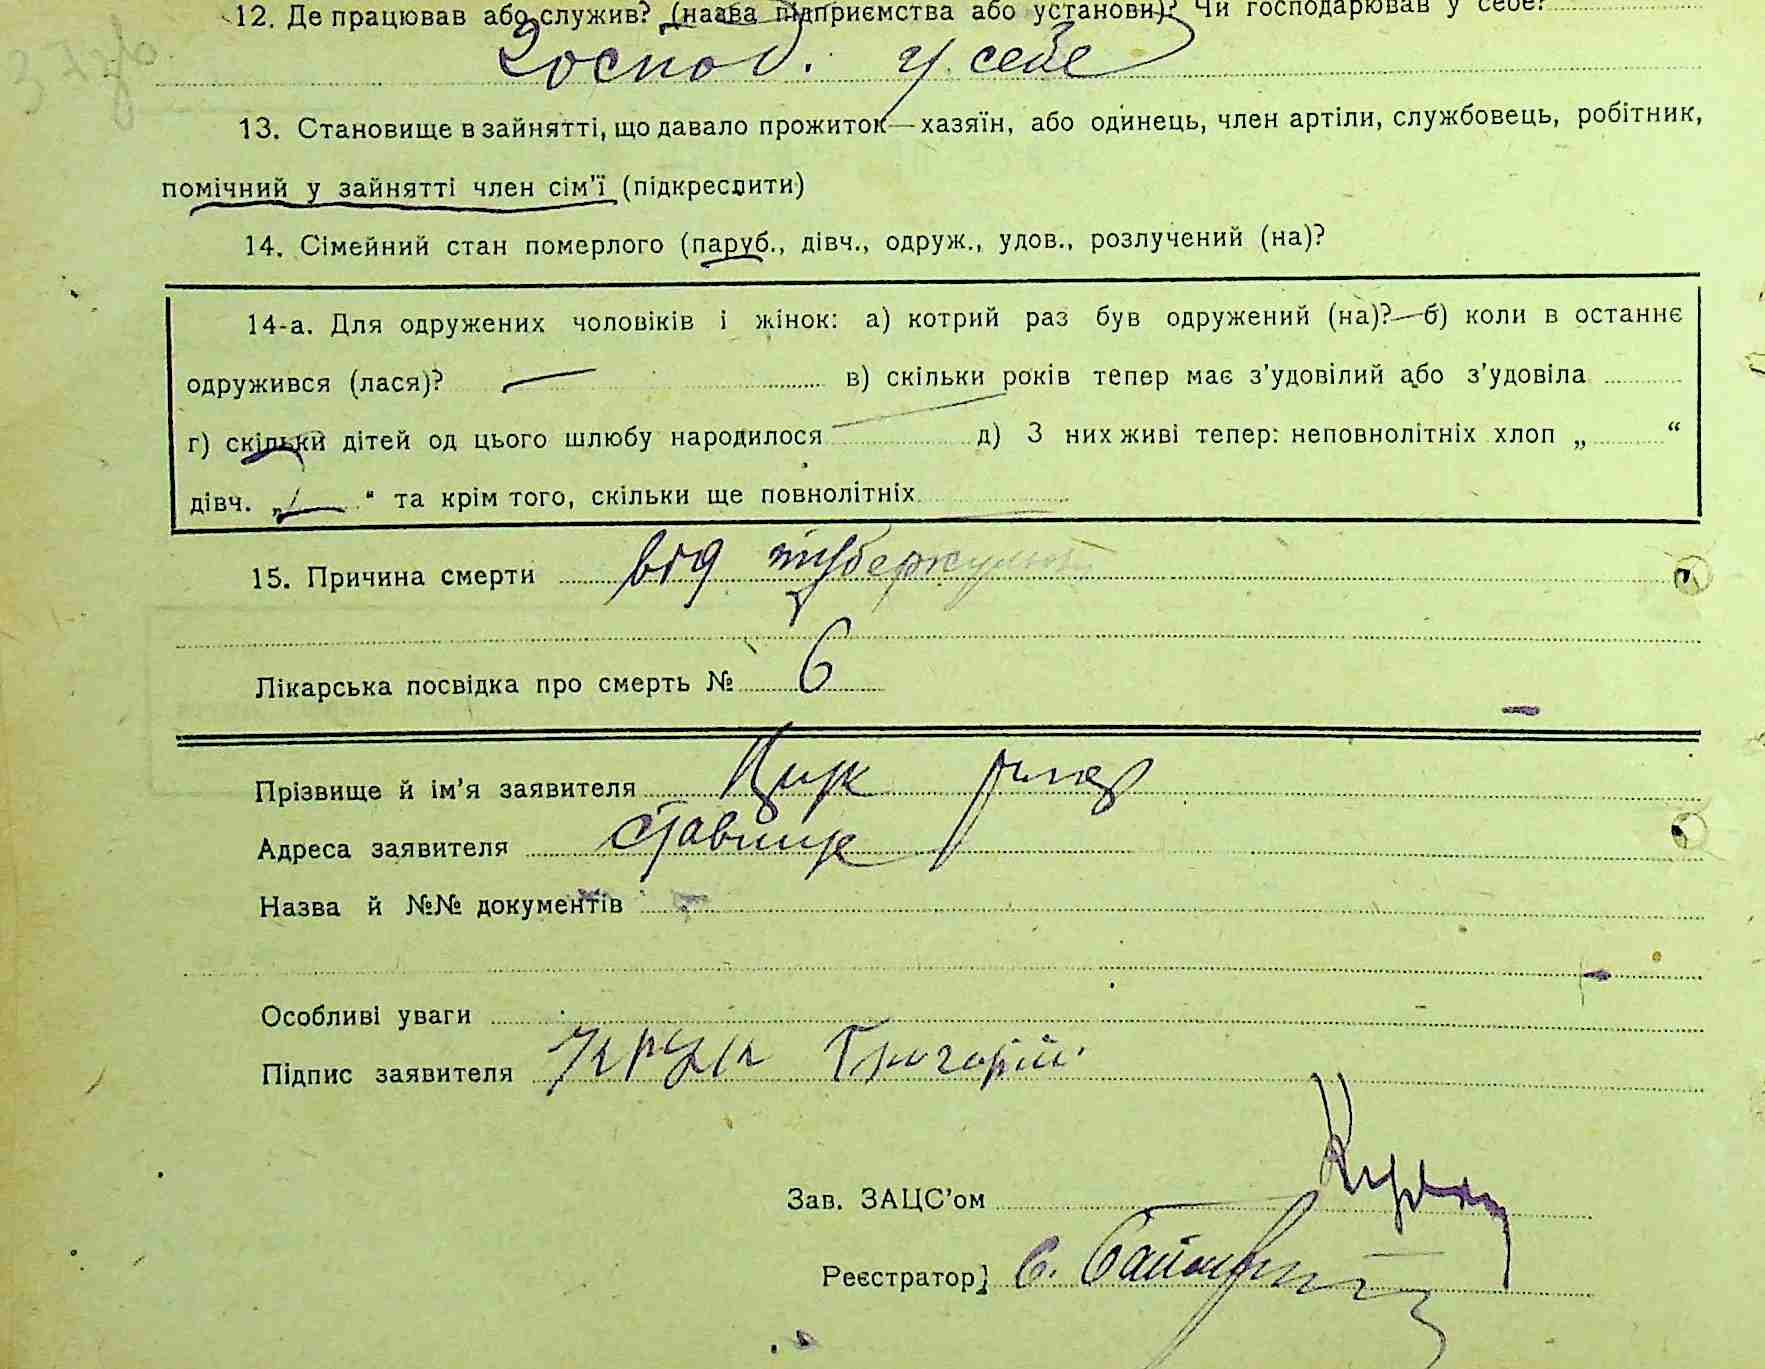 12. Де працював або служив? (назва підприємства або установи)? Чи господарював у себе?
Господ. у себе
13. Становище в зайнятті, що давало прожиток—хазяїн, або одинець, член артіли, службовець, робітник,
помічний у зайнятті член сім'ї (підкреслити)
14. Сімейний стан померлого (паруб., дівч., одруж., удов., розлучений (на)?
14-а. Для одружених чоловіків і жінок: а) котрий раз був одружений (на)? — б) коли в останнє
одружився (лася)? — в) скільки років тепер має з'удовілий або з'удовіла
г) скільки дітей од цього шлюбу народилося д) З них живі тепер: неповнолітніх хлоп „ “
дівч. „ — “ та крім того, скільки ще повнолітніх
15. Причина смерти від туберкульоз
Лікарська посвідка про смерть № 6
Прізвище й ім'я заявителя
Адреса заявителя Ставище
Назва й №№ документів
Особливі уваги
Підпис заявителя Григорій
Зав. ЗАЦС'ом
Реєстратор